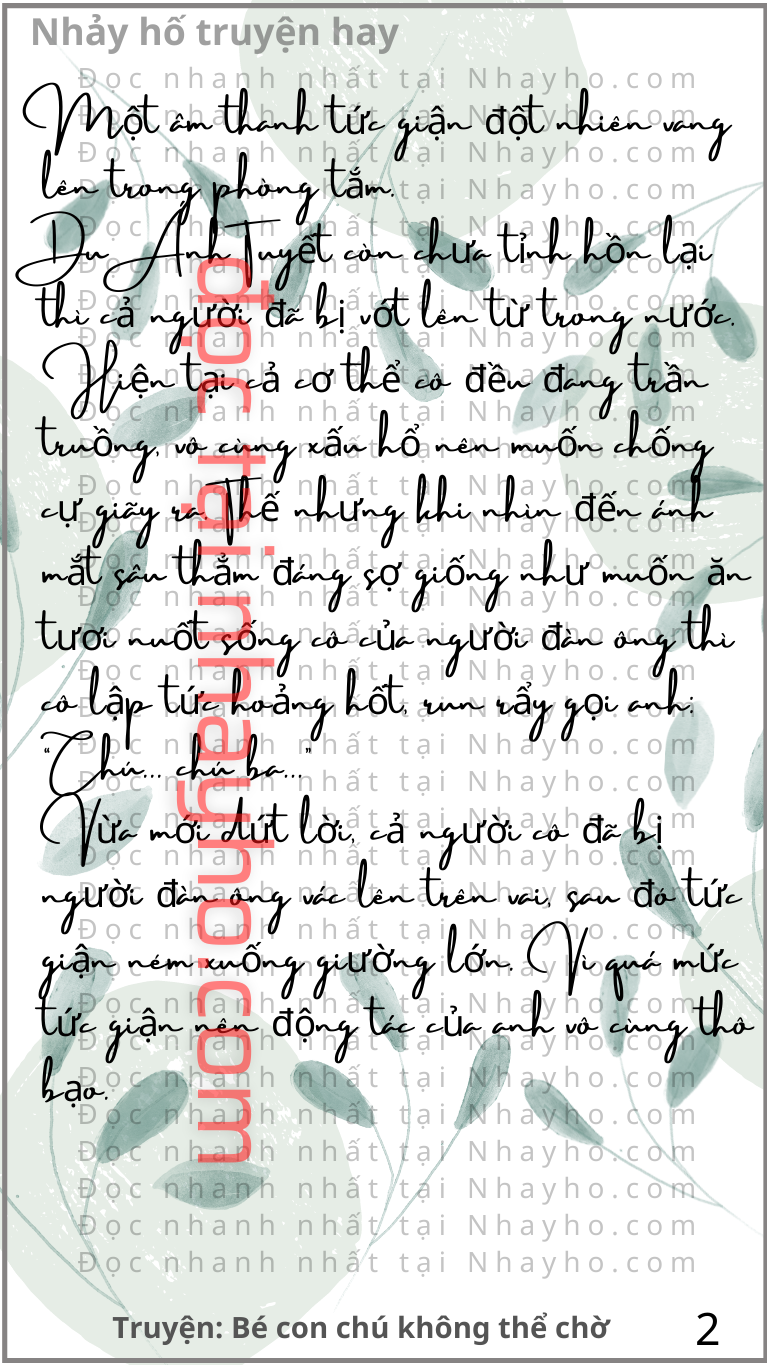 Nhảy hố truyện hay
Một âm thanh tức giận đột nhiên vang
lên trong phòng tắm.
Du Ánh Tuyết còn chưa tỉnh hồn lại
thì cả người đã bị vớt lên từ trong nước.
Hiện tại cả cơ thể cô đều đang trần
truồng, vô cùng xấu hổ nên muốn chống
cự giãy ra. Thế nhưng khi nhìn đến ánh
mắt sâu thẳm đáng sợ giống như muốn ăn
tươi nuốt sống cô của người đàn ông thì
cô lập tức hoảng hốt, run rẩy gọi anh:
“Chú... chú ba...”
Vừa mới dứt lời, cả người cô đã bị
người đàn ông vác lên trên vai, sau đó tức
giận ném xuống giường lớn. Vì quá mức
tức giận nên động tác của anh vô cùng thô
bạo.
đọc tại nhayho.com
Đọc nhanh nhất tại Nhayho.com
Truyện: Bé con chú không thể chờ
2